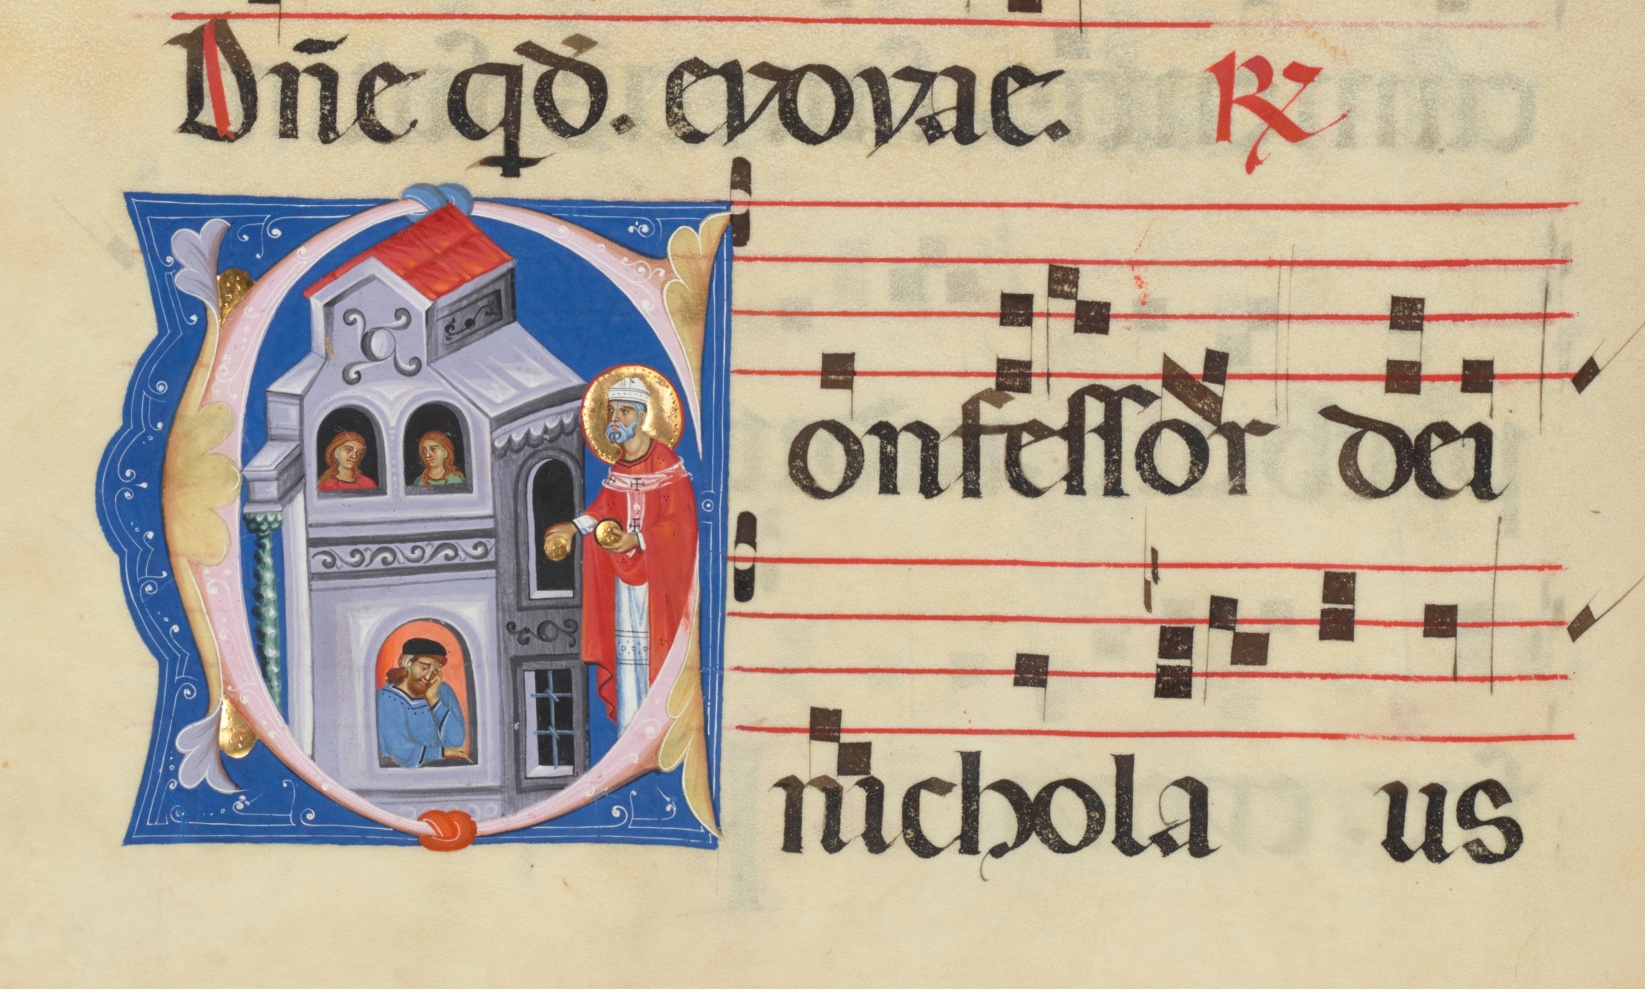 Dñe qđ. evovae. R
Confessor dei
nichola us